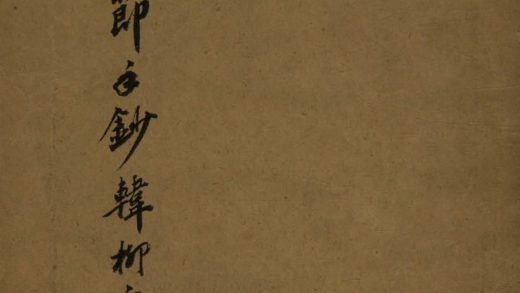 節手鈔韓柳